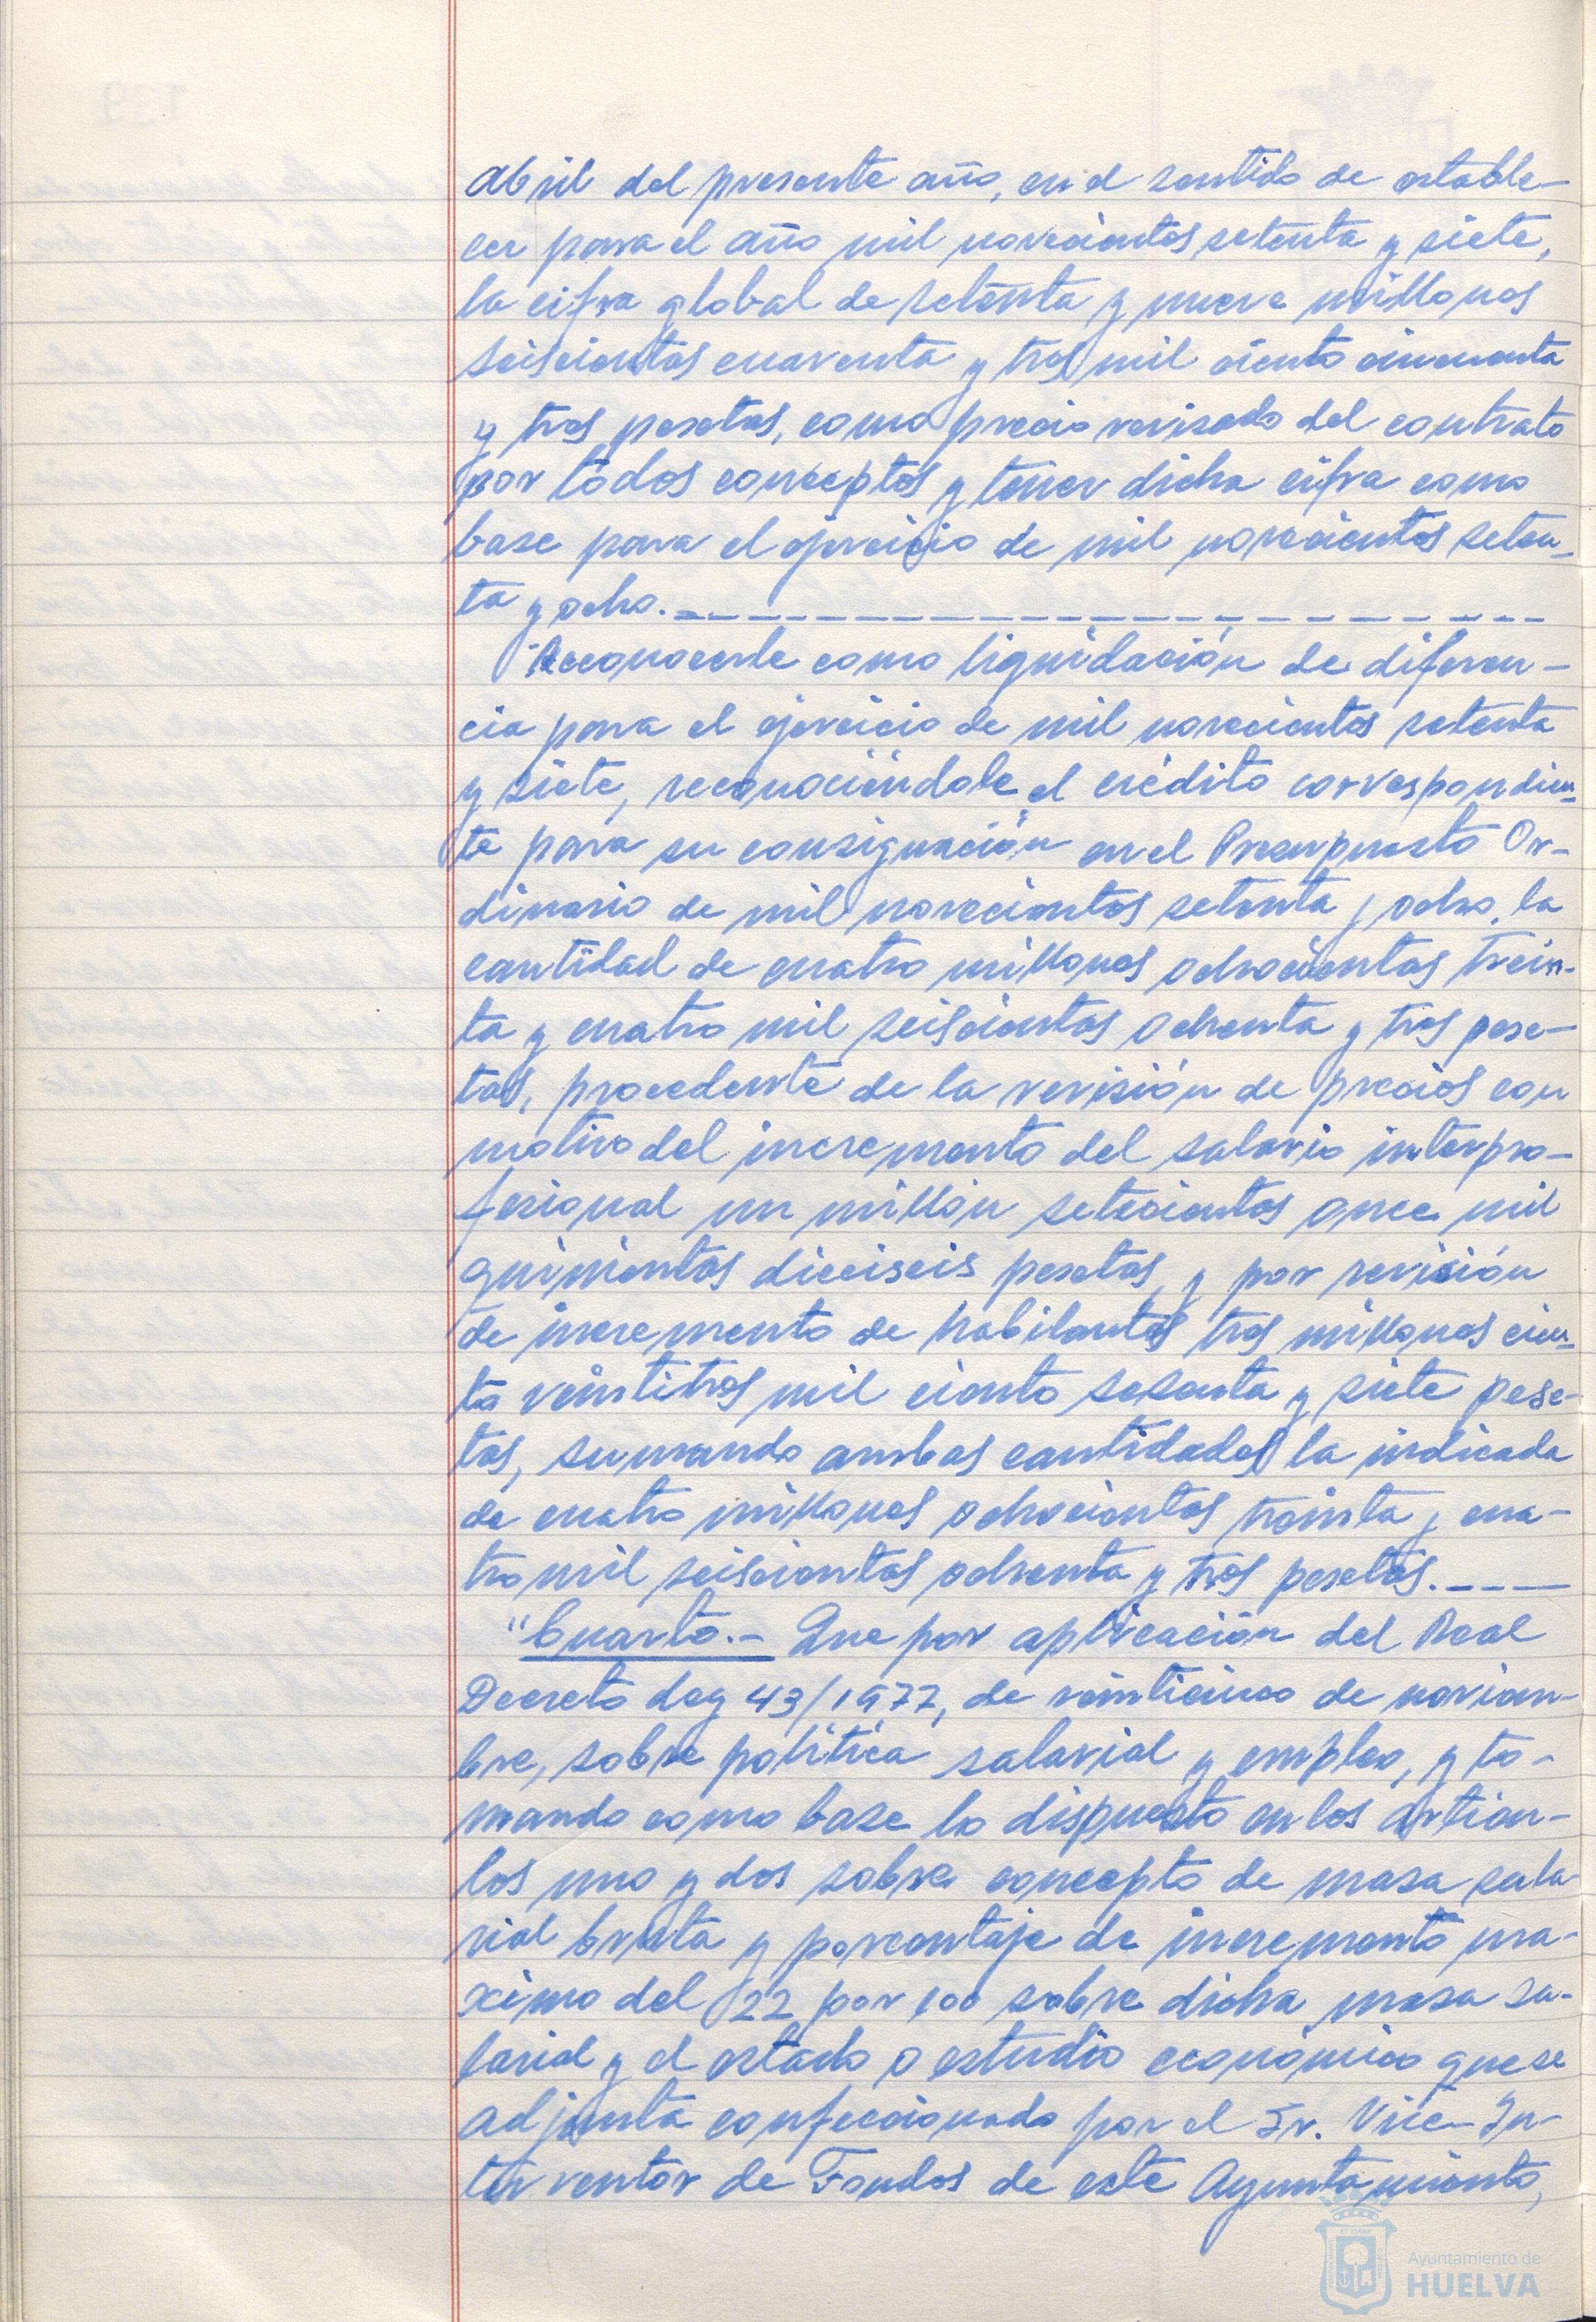 abril del presente año, en el sentido de estable-
cer para el año mil novecientos setenta y siete,
la cifra global de setenta y nueve millones
seiscientas cuarenta y tres mil ciento cincuenta
y tres pesetas, como precio revisado del contrato
por todos conceptos y tener dicha cifra como
base para el ejercicio de mil novecientos seten-
ta y ocho.
"Reconocerle como liquidación de diferen-
cia para el ejercicio de mil novecientos setenta
y siete, reconociéndole el crédito correspondien-
te para su consignación en el Presupuesto Or-
dinario de mil novecientos setenta y ocho, la
cantidad de cuatro millones ochocientas trein-
ta y cuatro mil seiscientas ochenta y tres pese-
tas, procedente de la revisión de precios con
motivo del incremento del salario interpro-
fesional un millón setecientas once mil
quinientas dieciseis pesetas, y por revisión
de incremento de habitantes tres millones cien-
to veintitres mil ciento sesenta y siete pese-
tas, sumando ambas cantidades la indicada
de cuatro millones ochocientas treinta y cua-
tro mil seiscientas ochenta y tres pesetas.
"Cuarto.- Que por aplicación del Real
Decreto Ley 43/1977, de veinticinco de noviem-
bre, sobre política salarial y empleo, y to-
mando como base lo dispuesto en los artícu-
los uno y dos sobre concepto de masa sala
rial bruta y porcentaje de incremento má-
ximo del 22 por 100 sobre dicha masa sa-
larial y el estado o estudio económico que se
adjunta confeccionado por el Sr. Vice-In-
terventor de Fondos de este Ayuntamiento,
Ayuntamiento de
HUELVA